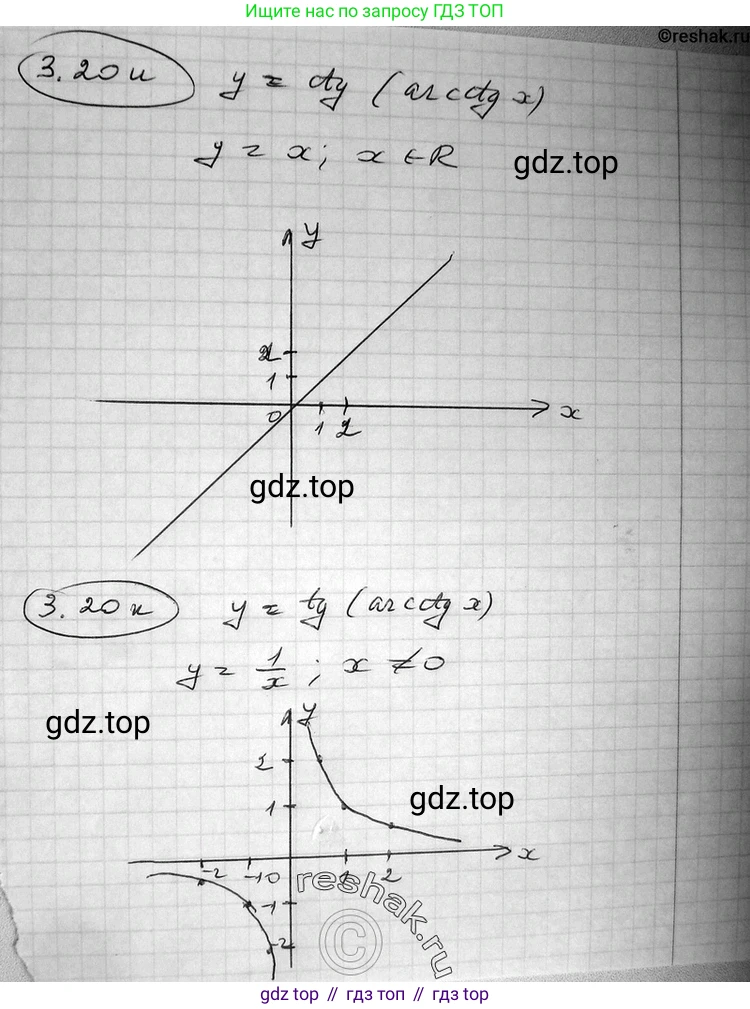 Ищите нас по запросу ГДЗ ТОП
©reshak.ru
3.20и y = ctg (arcctg x)
y = x; x ∈ R
gdz.top
y
2
1
0 1 2 x
gdz.top
3.20к y = tg (arcctg x)
y = 1/x ; x ≠ 0
gdz.top
y
2
1
gdz.top
x
-2 -1 0 1 2
-1
-2
reshak.ru
©
gdz top // гдз топ // gdz top